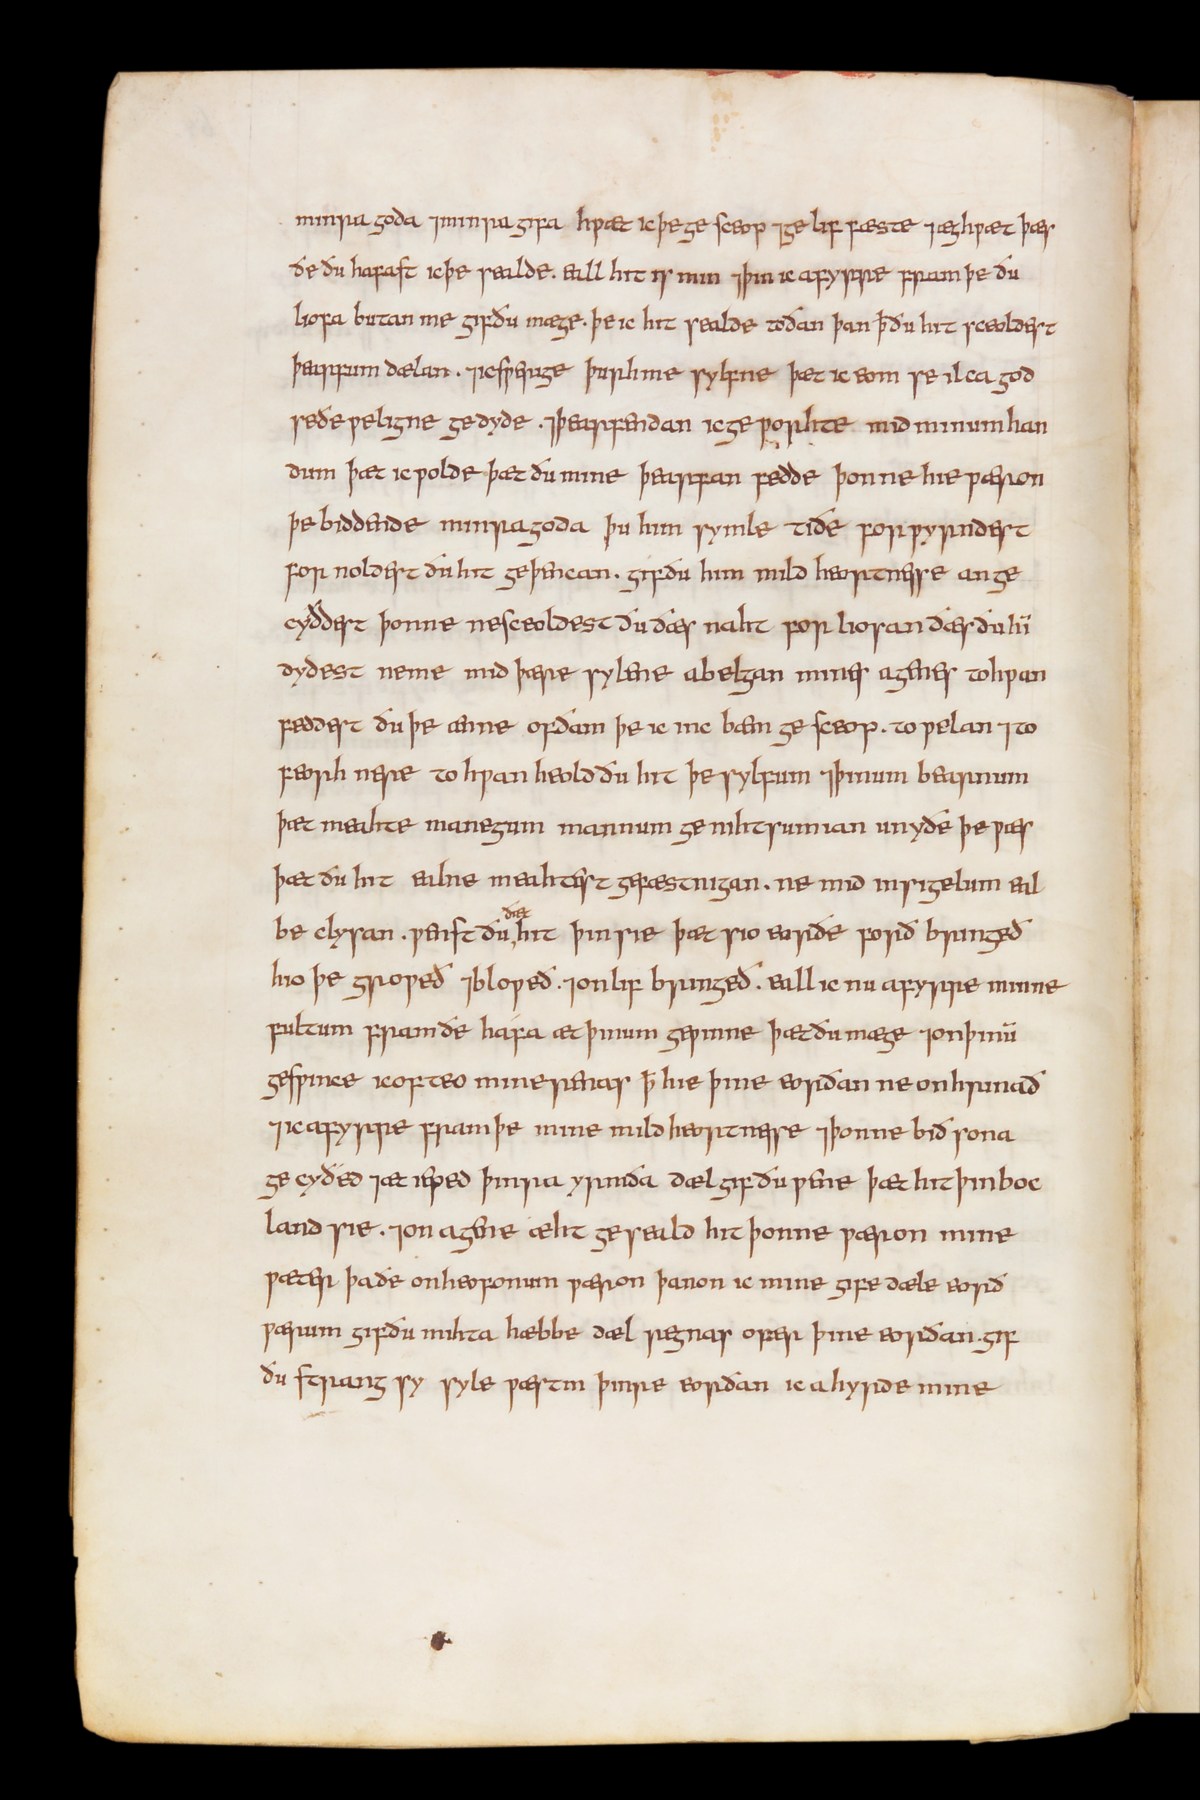 minra goda ⁊ minra gifa hƿæt ic þe ge sceop ⁊ ge lif fæste ⁊ æghƿæt þæs
ðe ðu hafast ic þe sealde. eall hit is min ⁊ þin ic afyrre fram þe ðu
liofa butan me gif ðu mæge. þe ic hit sealde to ðan þan þ̄ ðu hit sceoldest
þearfum dælan. ⁊ ic sƿerige þurh me sylfne þæt ic eom se ilca god
se ðe ƿeligne ge dyde. ⁊ þearfendan ic ge ƿorhte mid minum han
dum þæt ic ƿolde þæt ðu mine þearfan fedde þonne hie ƿæron
þe biddende minra goda þu him symle tiðe forƿyrndest
for noldest ðu hit geþencan. gif ðu him mildheortnesse an ge
cyððest þonne ne sceoldest ðu ðæs naht forliosan ðæs ðu hī
dydest ne me mid þære sylene abelgan mines agenes to hƿan
feddest ðu þe ænne of ðam þe ic inc bæm ge sceop. to ƿelan ⁊ to
feorh nere to hƿan heold ðu hit þe sylfum ⁊ þinum bearnum
þæt meahte manegum mannum ge nihtsumian unyðe þe ƿæs
þæt ðu hit ealne meahtest gefæstnigan. ne mid insigelum eal
be clysan. ƿenst ðu ðæt hit þin sie þæt sio eorðe forð bringeð
hio þe groƿeð ⁊ bloƿeð. ⁊ on lif bringeð. eall ic nu afyrre minne
fultum fram ðe hafa æt þinum geƿinne þæt ðu mæge ⁊ on þinū
gesƿince ic ofteo mine renas þ̄ hie þine eorðan ne onhrinað
⁊ ic afyrre fram þe mine mildheortnesse ⁊ þonne bið sona
ge cyðed ⁊ æt ieƿed þinra yrmða dæl gif ðu ƿene þæt hit þin boc
land sie. ⁊ on agene æht ge seald hit þonne ƿæron mine
ƿæter þa ðe on heofonum ƿæron þanon ic mine gife dæle eorð
ƿarum gif ðu mihta hæbbe dæl regnas ofer þine eorðan. gif
ðu strang sy syle ƿæstm þinre eorðan ic ahyrde mine